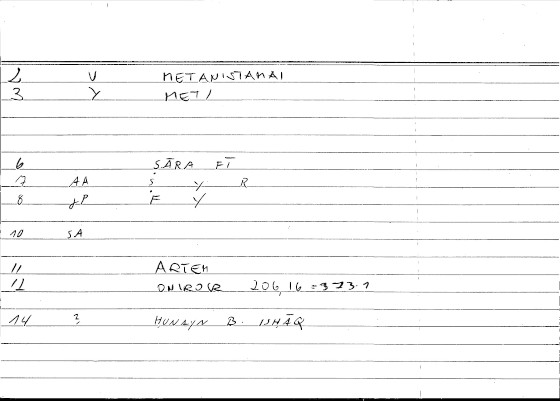 2 V METANISTAMAI
3 Y METI
6 SĀRA FĪ
7 AA Ṣ Y R
8 gP F Y
10 SA
11 ARTEM
12 ONIROCR 206, 16 = 323.1
14 ? HUNAYN B. ISHĀQ